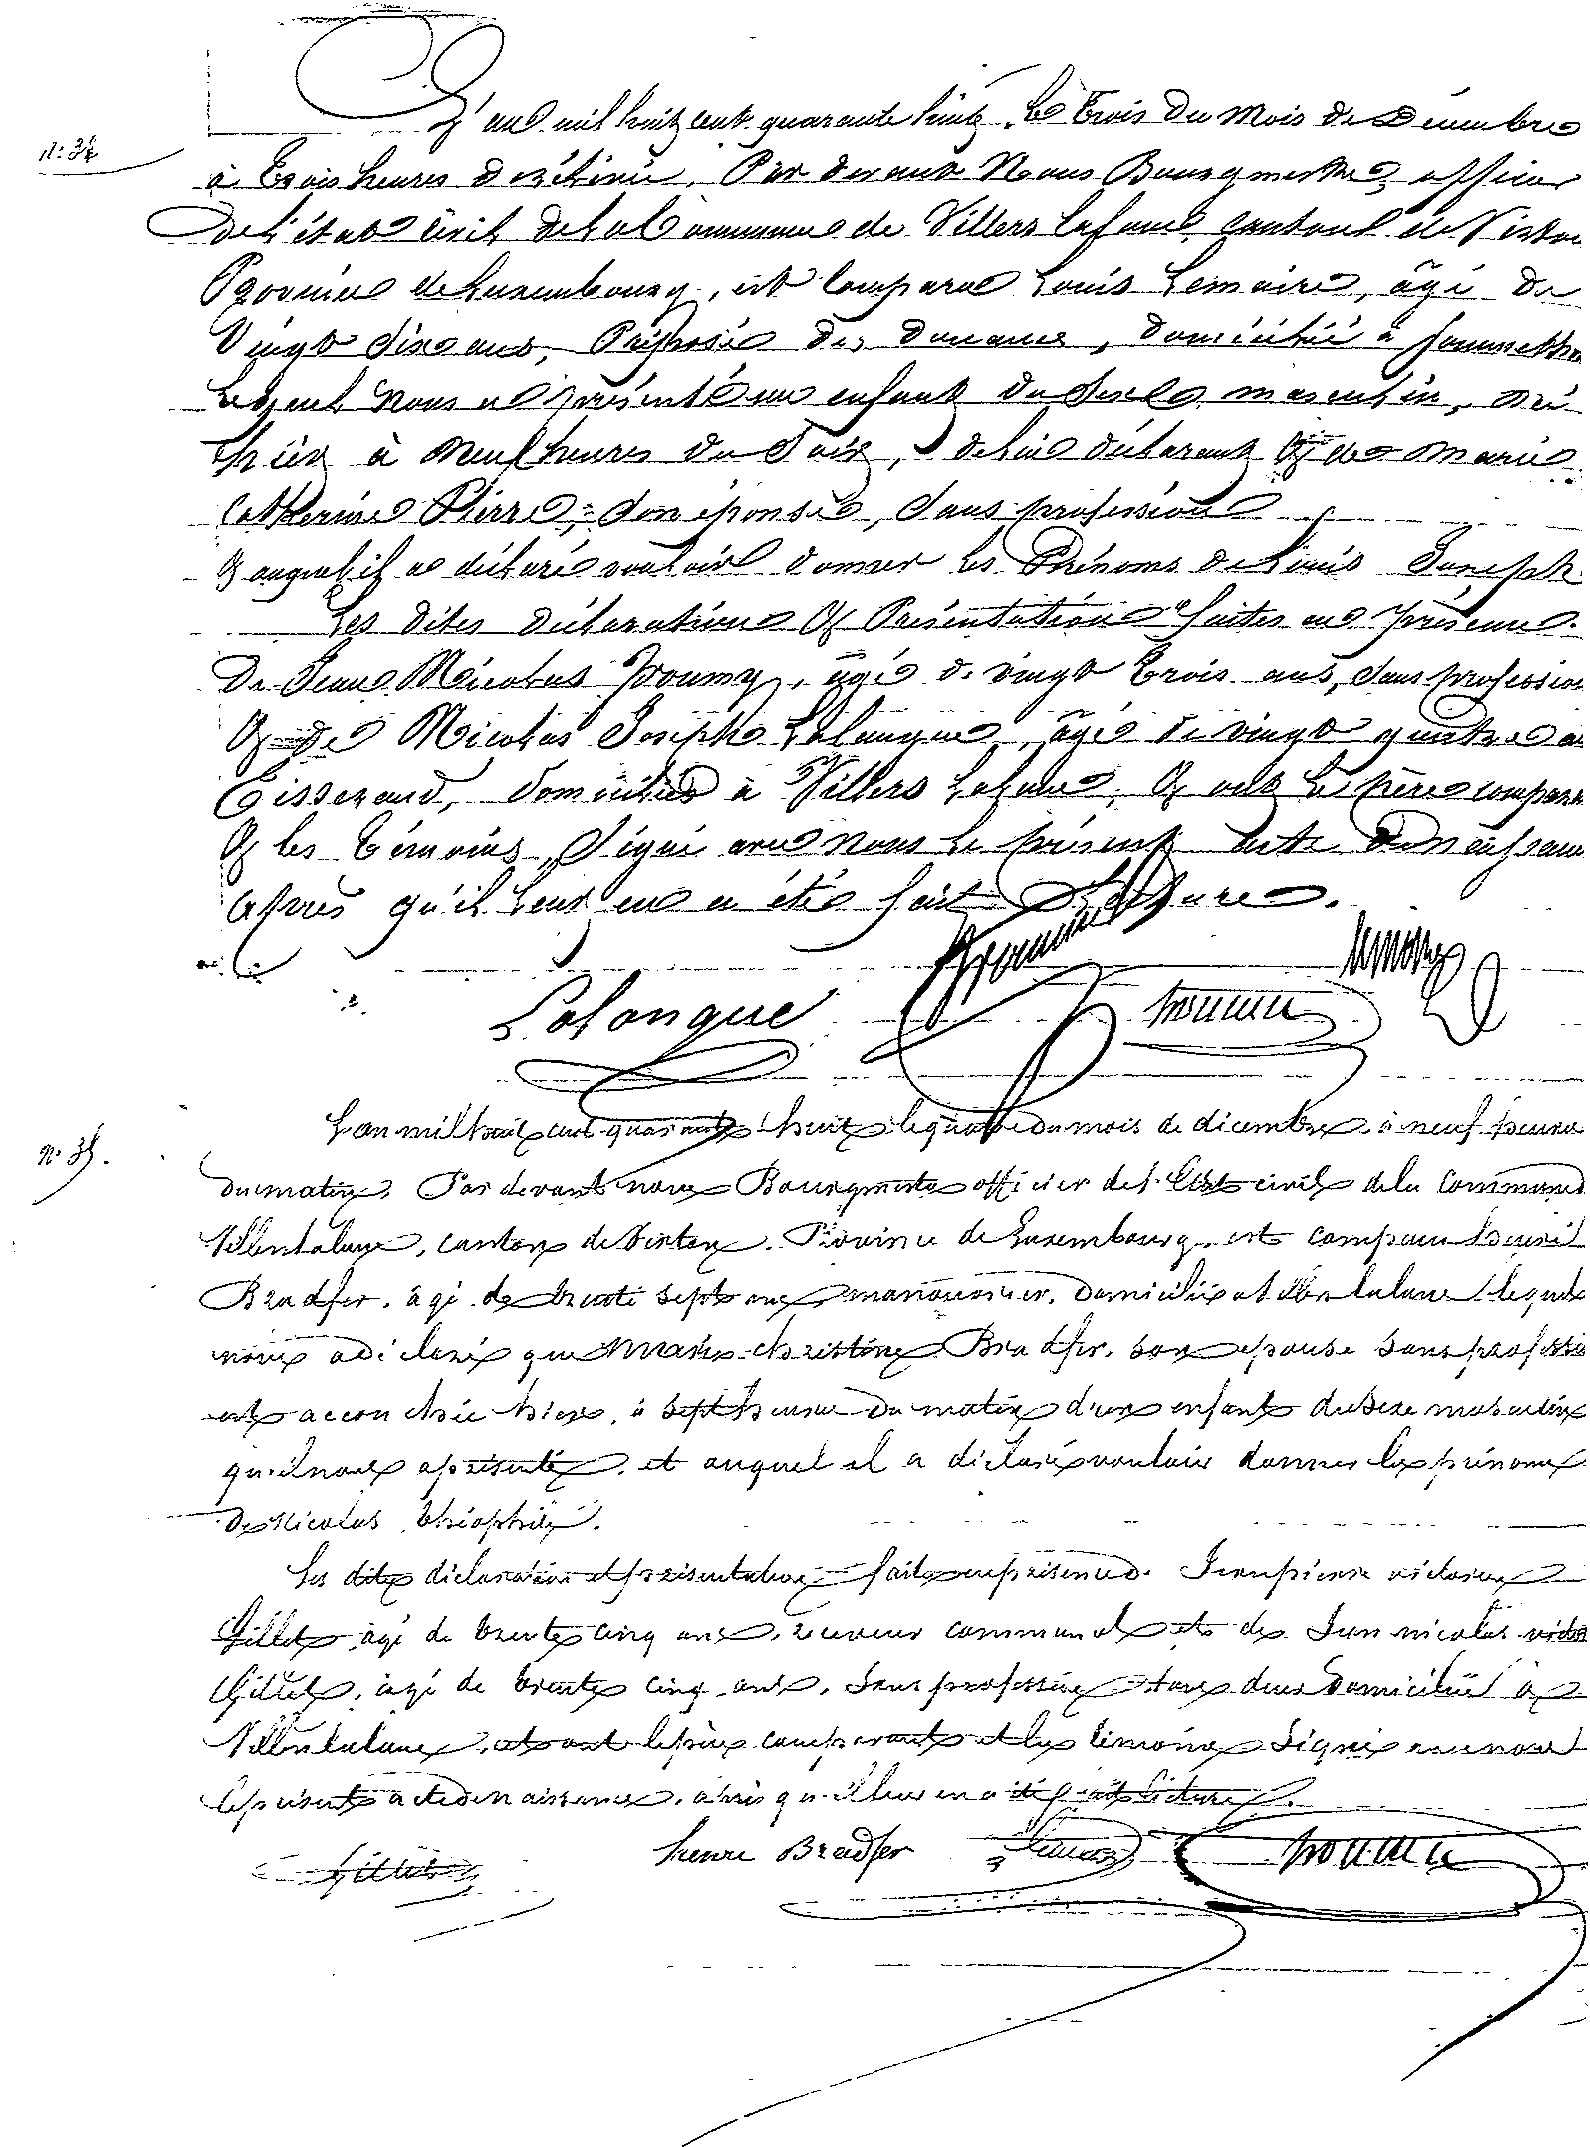 N° 34
L'an mil huit cent quarante huit, le trois du mois de Décembre
à trois heures de rélévée, Par devant Nous Bourgmestre, officier
de l'état civil de la Commune de Villers la loue, canton de Virton
Province de Luxembourg, est comparu Louis Lemoine, âgé de
Vingt six ans, Préposé des douanes, domicilié à
Lequel Nous a présenté un enfant du sexe masculin, né
hier à neuf heures du soir, de lui déclarant & de Marie
Catherine Pierre, son épouse, sans profession
& auquel il a déclaré vouloir donner les Prénoms de Louis Joseph
Les dites déclaration & Présentation faites en présence
de Jean Nicolas, âgé de vingt trois ans, sans profession
& de Nicolas Joseph Lalangue, âgé de vingt quatre a
Tisserand, domiciliés à Villers la loue, & ont le père compara
& les témoins, signé avec nous le présent acte de naissan
après qu'il leur en a été fait Lecture.
Lalangue
N° 35.
L'an mil huit cent quarante huit le quatre du mois de décembre, à neuf heures
du matin, Par devant nous Bourgmestre officier de l'Etat civil de la Commune d
Villers la loue, canton de Virton, Province de Luxembourg, est comparu henri
Bradfer, âgé de trente sept ans, manouvrier, domicilié à Villers la loue, lequel
nous a déclaré que Marie Christine Bradfer, son épouse sans professi
est accouchée hier, à sept heures du matin d'un enfant du sexe masculin
qu'il nous a présenté, et auquel il a déclaré vouloir donner les prénoms
de Nicolas théophile.
Les dites déclaration et présentation faites en présence d. Jean pierre victorien
Gillet, âgé de trente cinq ans, receveur communal et de Jean nicolas
Gillet, âgé de trente cinq ans, sans profession tous deux domiciliés à
Villers la loue, et ont le père comparant et les témoins signé avec nous
le présent acte de naissance, après qu'il leur en a été fait lecture.
Gillet henri Bradfer